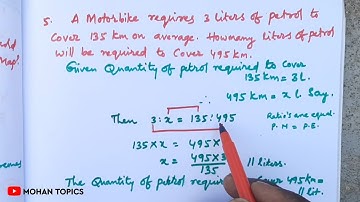 5. A Motorbike requires 3 liters of petrol to
cover 135 km on average. Howmany liters of petrol
will be required to Cover 495 km.
Given Quantity of petrol required to cover
135 km = 3 L.
∴ 495 km = x l. Say.
Then 3 : x = 135 : 495
Ratio's are equal.
P. M = P. E.
135 X x = 495 X
x = 495 X 3 / 135 11 liters.
The Quantity of petrol Cover 495 km =
11 lit.
MOHAN TOPICS